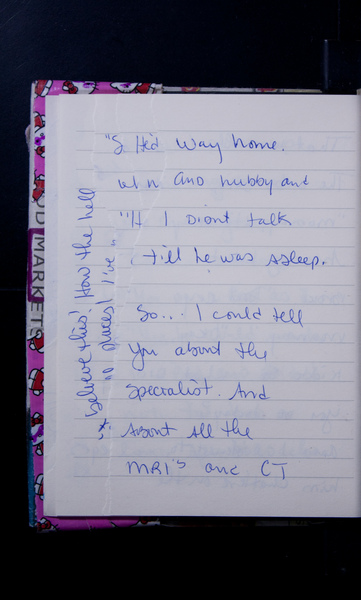 way home.
and hubby and
I Didnt talk
till he was asleep.
So... I could tell
you about the
specialist. And
About all the
MRI's and CT
believe this! How the hell
I've
D MARKETS